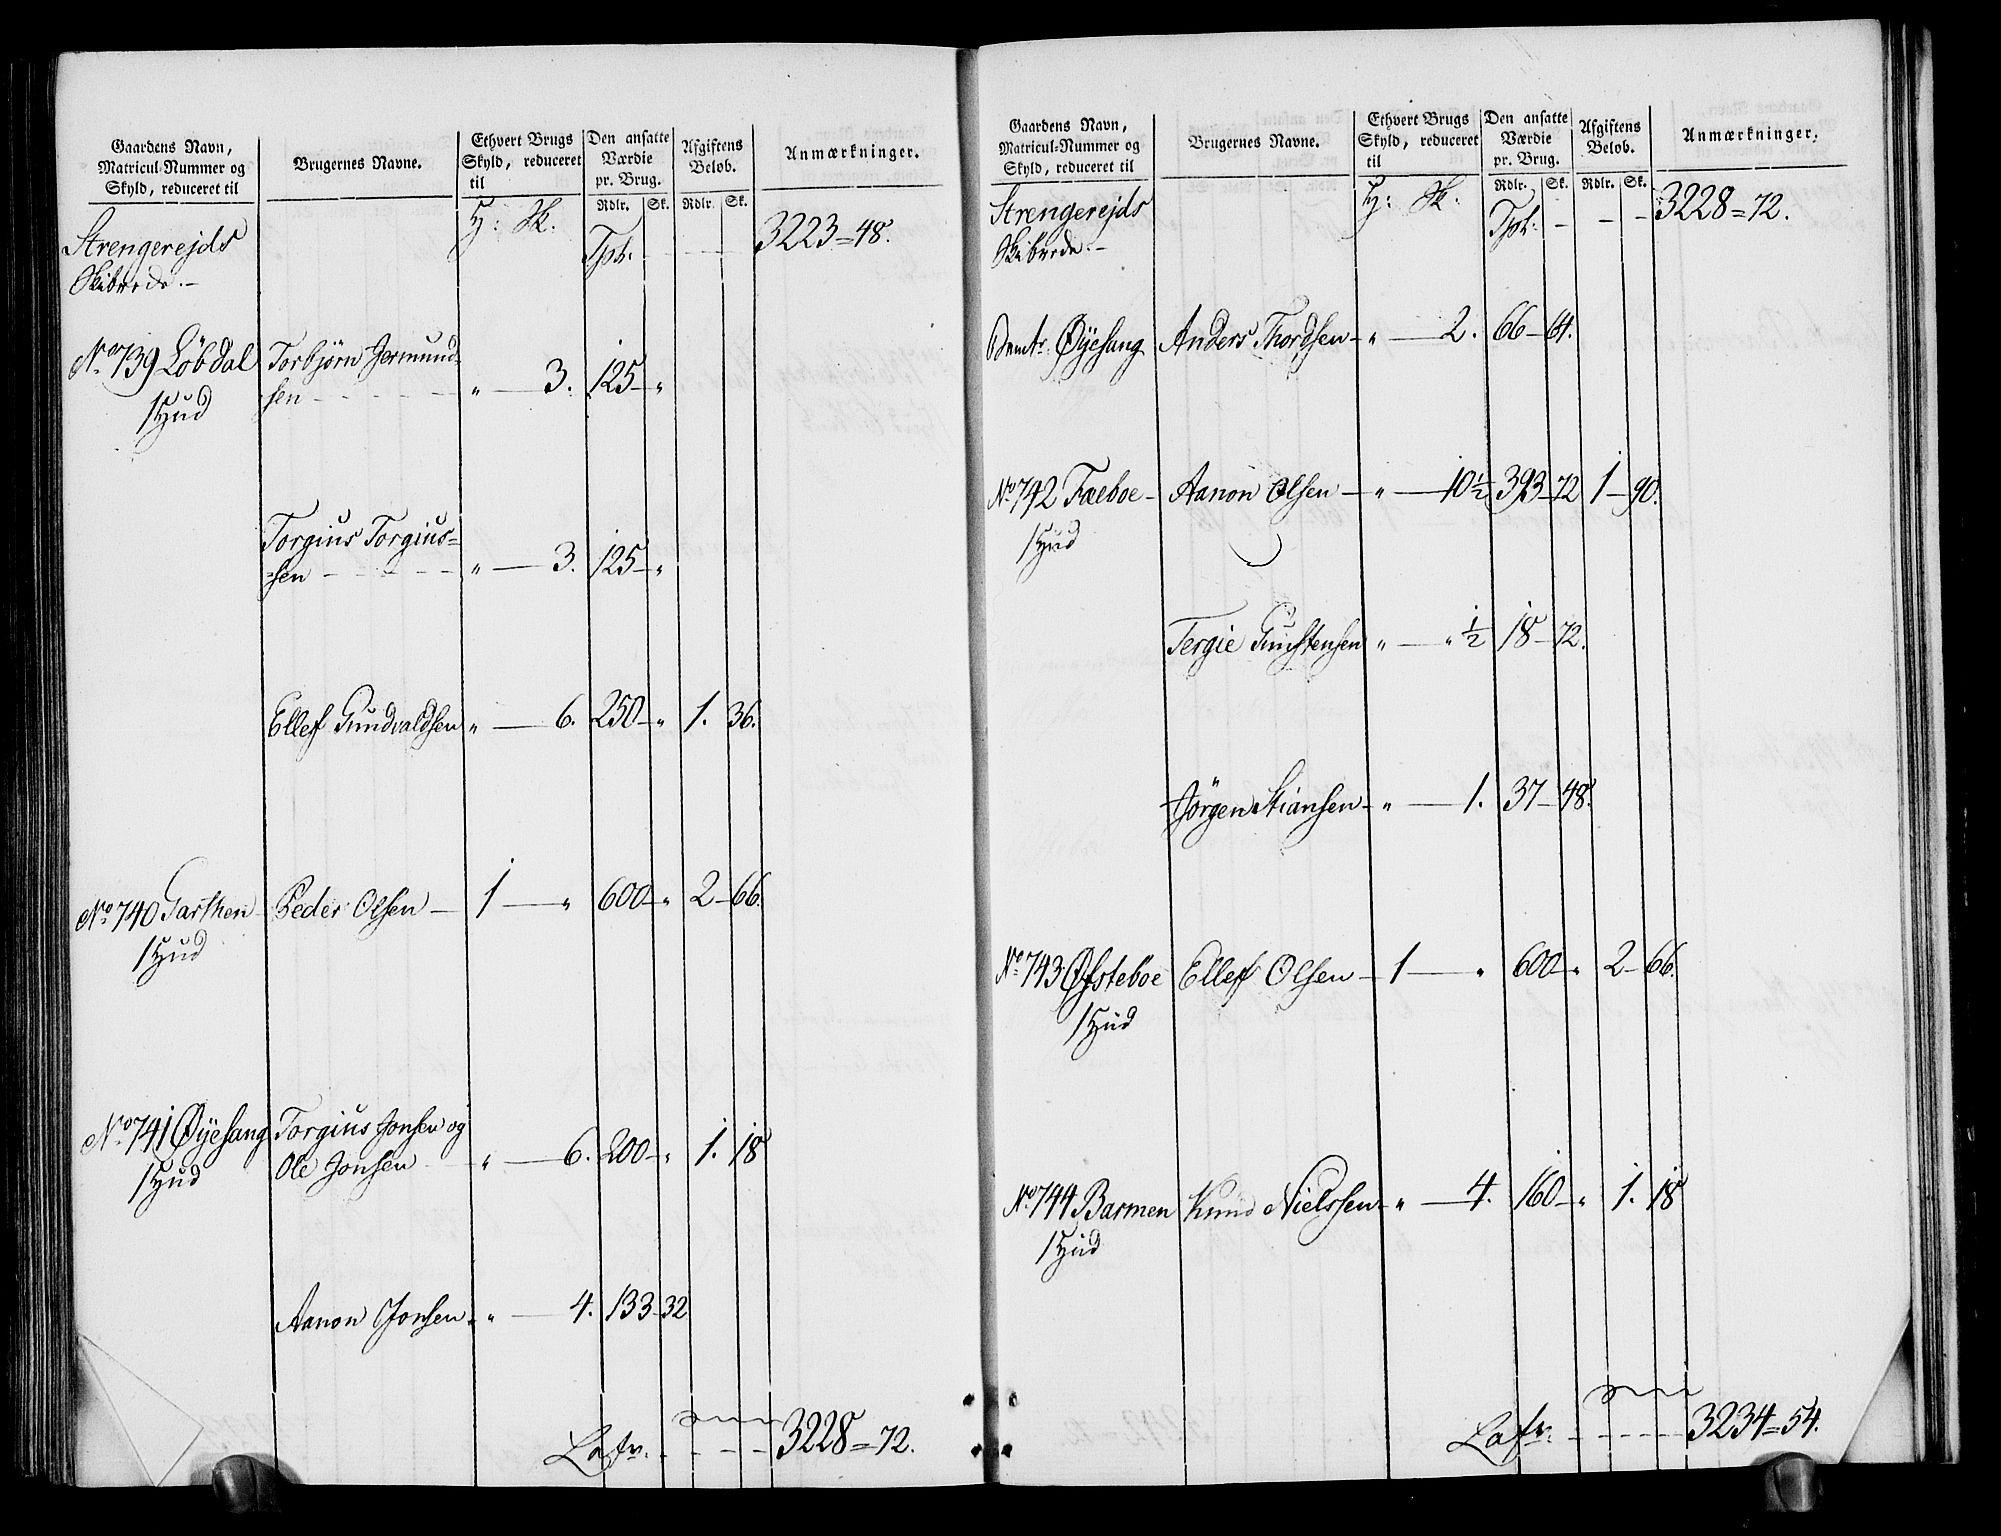 Gaardens Navn, Matricul-Nummer og Skyld, reduceret til
Brugernes Navne.
Ethvert Brugs Skyld, reduceret til
Den ansatte Værdie pr. Brug.
Afgiftens Beløb.
Anmærkninger.
Rdlr. Sk. Rdlr. Sk.
H: Sk.
Strengerejds
Skibrede.-
Tpt. - - - 3223=48.
No 739 Löbdal Torbjørn Jermund-
1 Hud sen - - - - " — 3. 125 - "
Torgius Torgius=
=sen - - - - " — 3. 125 - "
Ellef Gundvaldsen " — 6. 250 - " 1. 36.
No 740 Garthen - Peder Olsen — 1 — " 600 - " 2 - 66.
1 Hud
No 741 Øyesang Torgius Jonsen og
1 Hud Ole Jonsen - " — 6. 200 - " 1. 18
Aanon Jonsen - " — 4. 133 - 32
Lafr. - - - - 3228=72.
Gaardens Navn, Matricul-Nummer og Skyld, reduceret til
Brugernes Navne.
Ethvert Brugs Skyld, reduceret til
Den ansatte Værdie pr. Brug.
Afgiftens Beløb.
Anmærkninger.
Rdlr. Sk. Rdlr. Sk.
H: Sk.
Strengerejds
Skibrede.-
Tpt. - - - 3228=72.
Øyesang Anders Thordsen - " — 2. 66 - 64.
No 742 Faeboe - Aanon Olsen — " — 10 1/2 393 - 72 1 - 90.
1 Hud
Tergie Gunstensen " — " 1/2 18 - 72.
Jörgen Stiansen - " — 1. 37 - 48.
No 743 Øfsteboe Ellef Olsen — 1 — " 600 - " 2 - 66.
1 Hud
No 744 Barmen Knud Nielssen - " — 4. 160 - " 1. 18
1 Hud
Lafr. - - - - 3234=54.